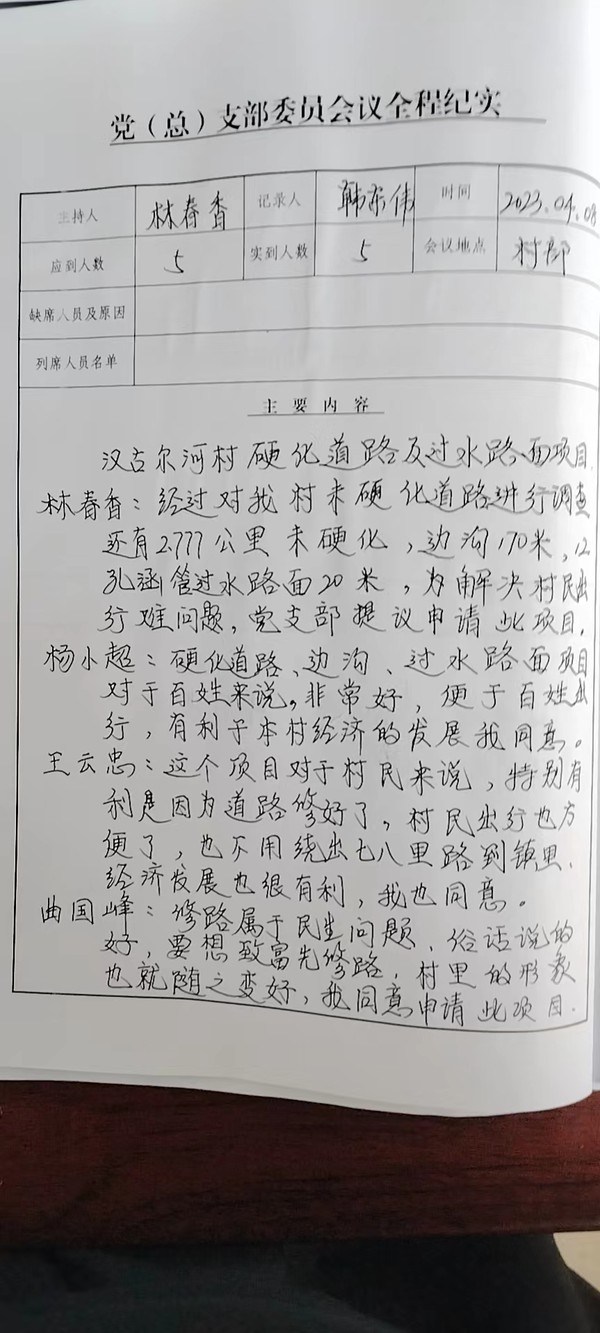 党（总）支部委员会议全程纪实
主持人 林春香 记录人 韩东伟 时间 2023.04.08
应到人数 5 实到人数 5 会议地点 村部
缺席人员及原因
列席人员名单
主要内容
汉古尔河村硬化道路及过水路面项目
林春香：经过对我村未硬化道路进行调查
还有2.777公里未硬化，边沟170米，12
孔涵管过水路面20米，为解决村民出
行难问题，党支部提议申请此项目.
杨小超：硬化道路、边沟、过水路面项目
对于百姓来说，非常好，便于百姓出
行，有利于本村经济的发展我同意。
王云忠：这个项目对于村民来说，特别有
利是因为道路修好了，村民出行也方
便了，也不用绕出七八里路到镇里.
经济发展也很有利，我也同意。
曲国峰：修路属于民生问题、俗话说的
好，要想致富先修路，村里的形象
也就随之变好，我同意申请此项目.